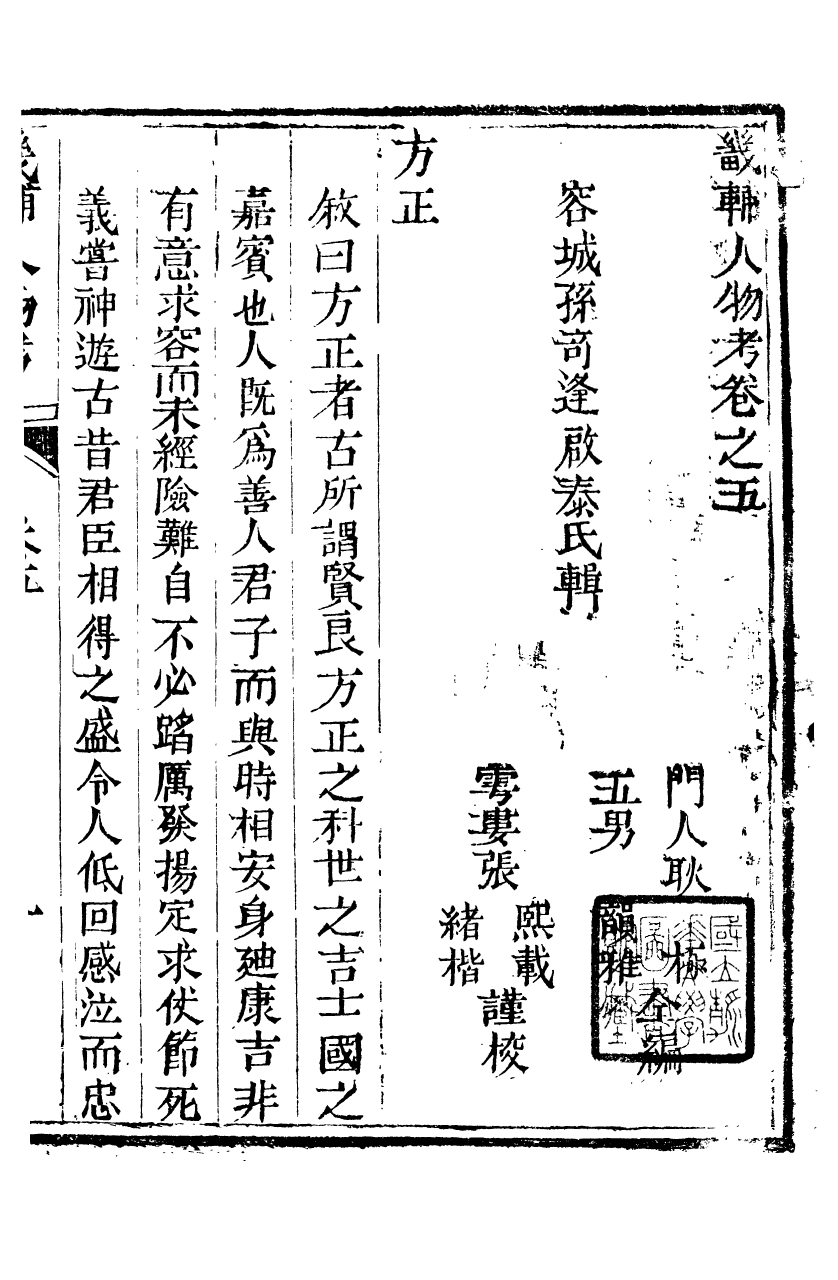 畿輔人物考卷之五
容城孫奇逢啟泰氏輯
門人耿極
五男韻雅
仝編
霅婁張
熙載
緒楷
謹校
方正
敘曰方正者古所謂賢良方正之科世之吉士國之
嘉賓也人既爲善人君子而與時相安身廸康吉非
有意求容而未經險難自不必蹈厲發揚定求伏節死
義嘗神遊古昔君臣相得之盛令人低回感泣而忠
畿輔人物考
卷五
一